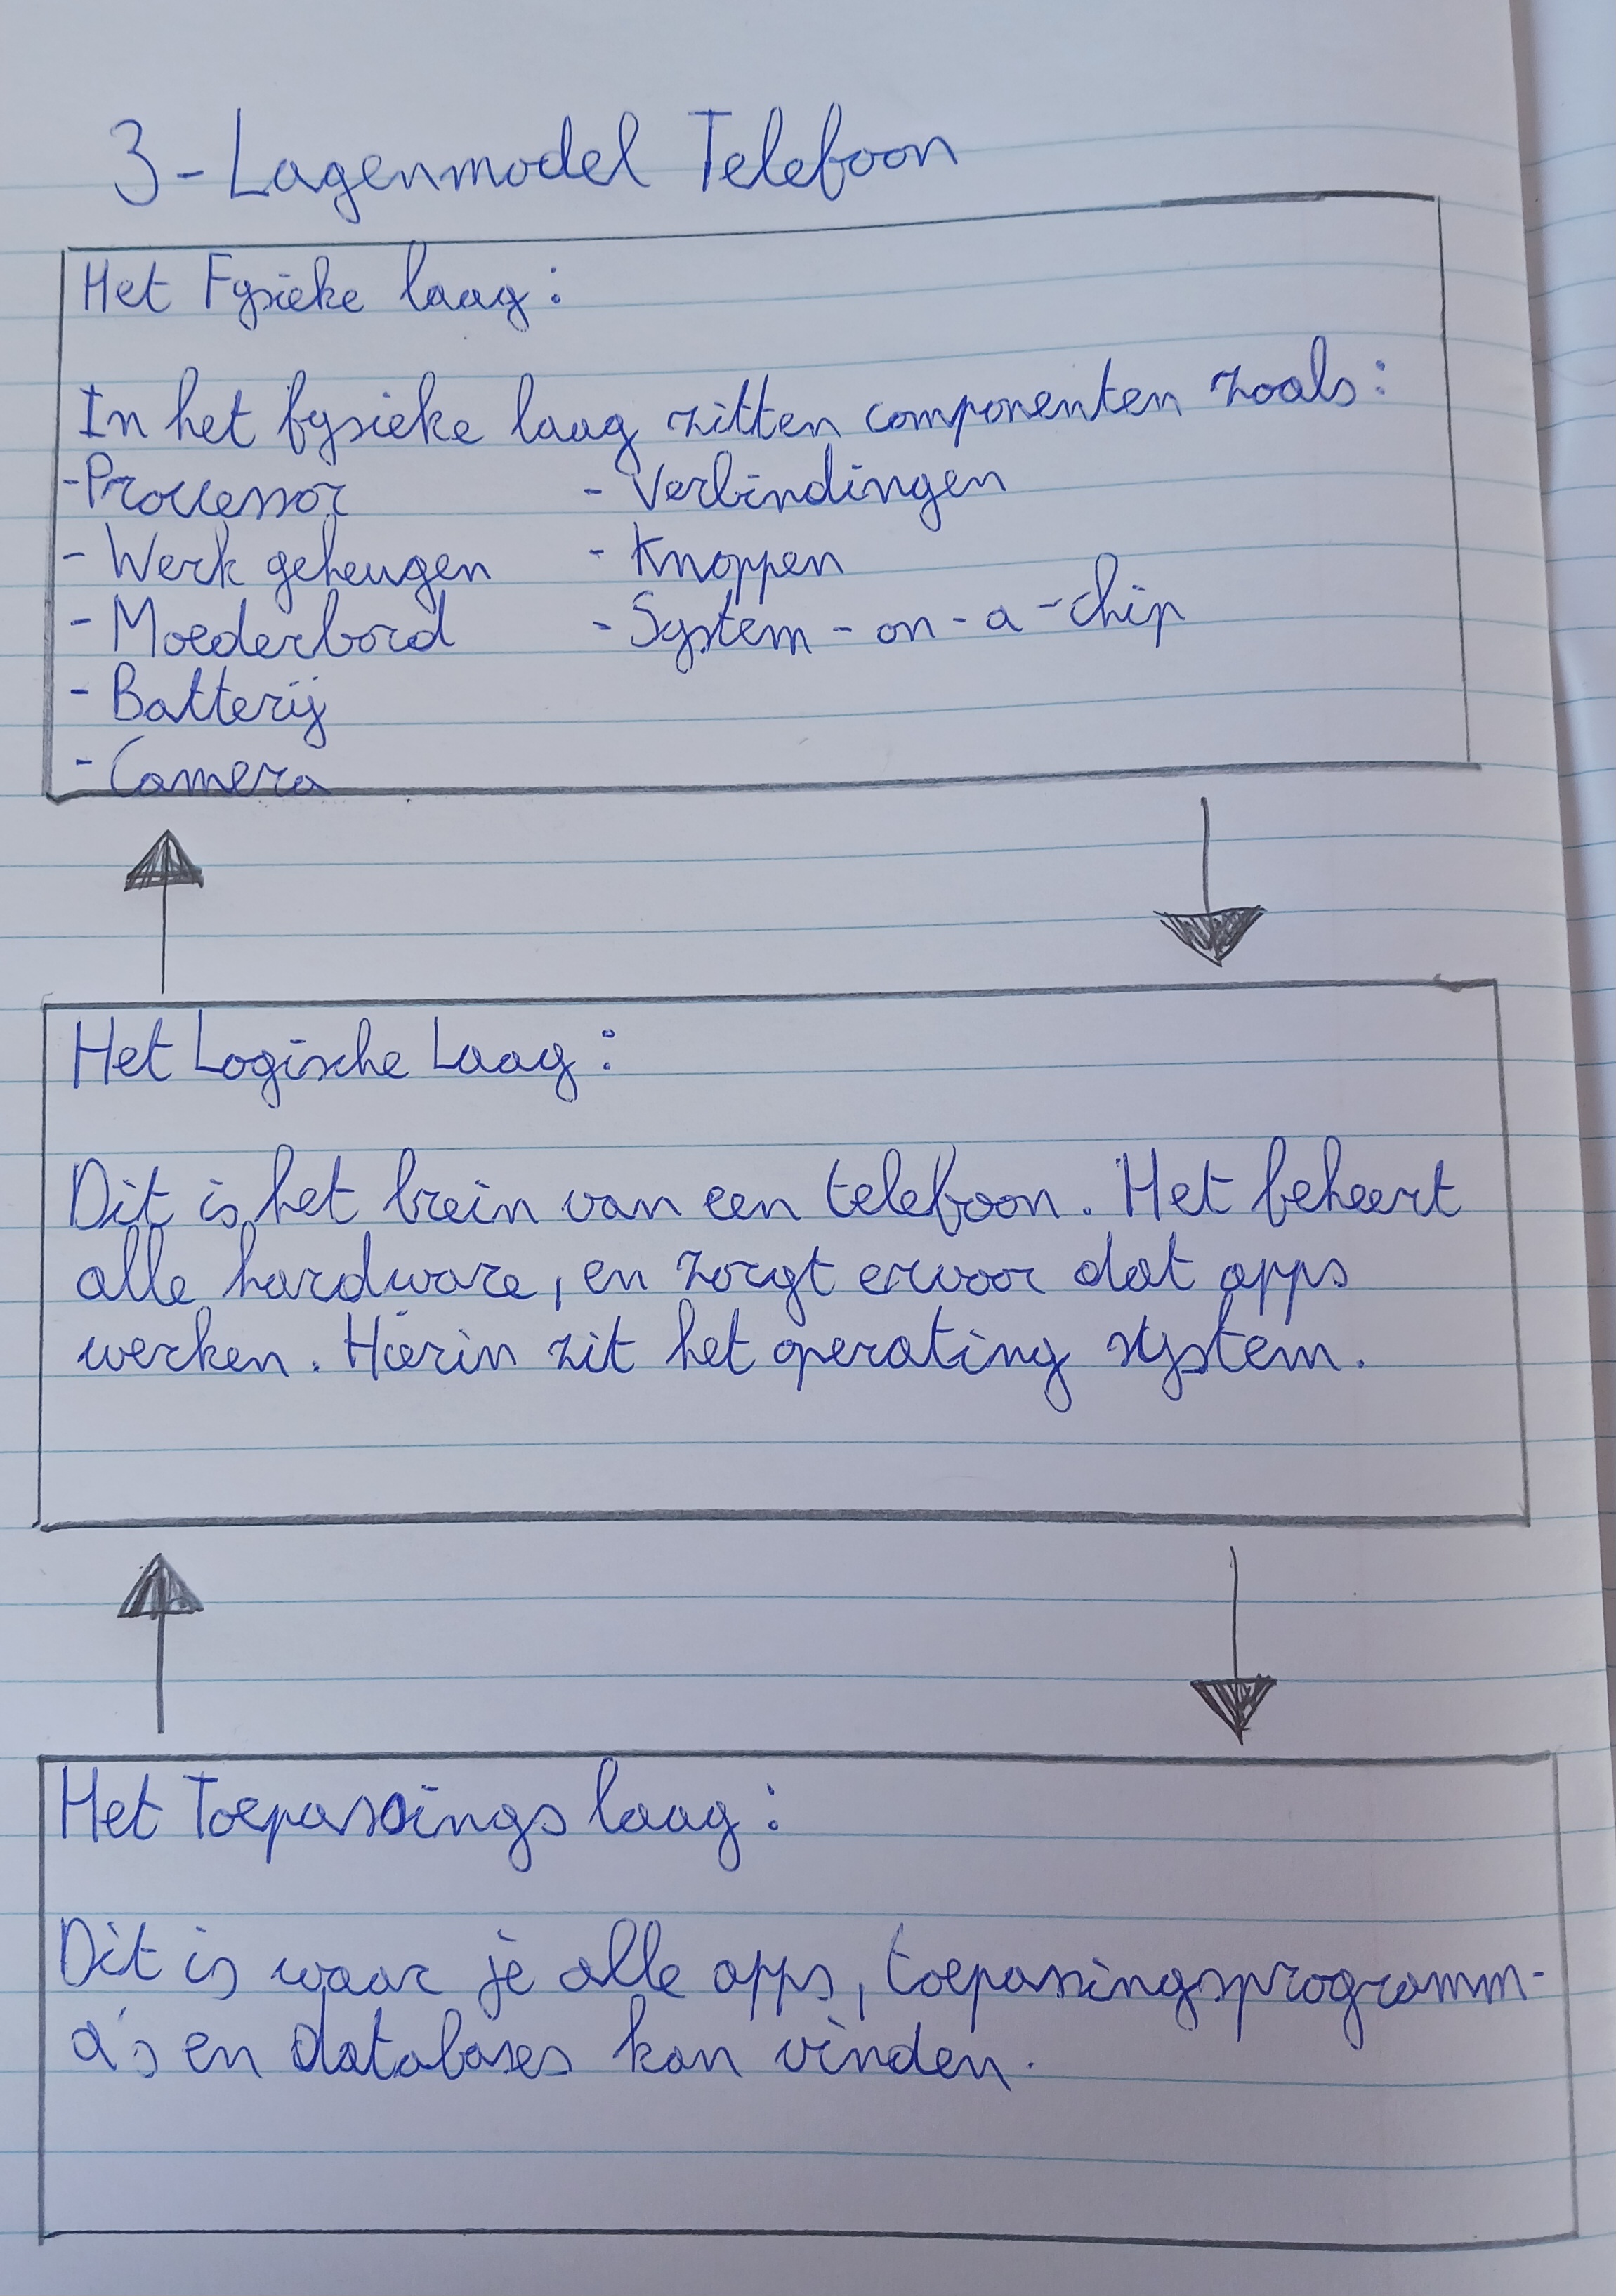 3-Lagenmodel Telefoon
Het Fysieke laag:
In het fysieke laag zitten componenten zoals:
-Processor
- Werk geheugen
- Moederbord
- Batterij
- Camera
- Verbindingen
- Knoppen
- System-on-a-chip
Het Logische Laag:
Dit is het brein van een telefoon. Het beheert
alle hardware, en zorgt ervoor dat apps
werken. Hierin zit het operating system.
Het Toepassings laag:
Dit is waar je alle apps, toepassingsprogramm-
a's en databases kan vinden.